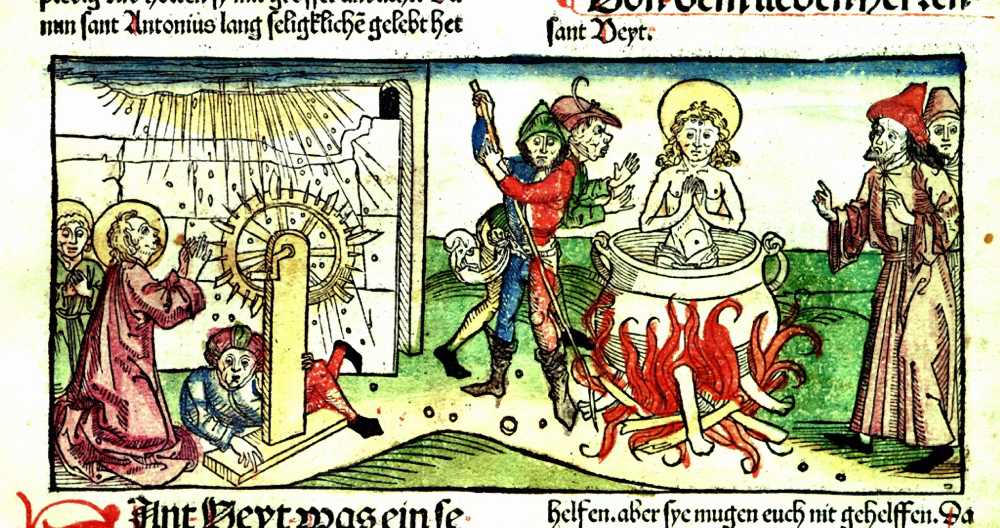 nun sant Antonius lang seligklichē gelebt het
Von dem lieben herren
sant Veyt.
Sant Veyt was ein se
helfen. aber sye mugen euch nit gehelffen. Da